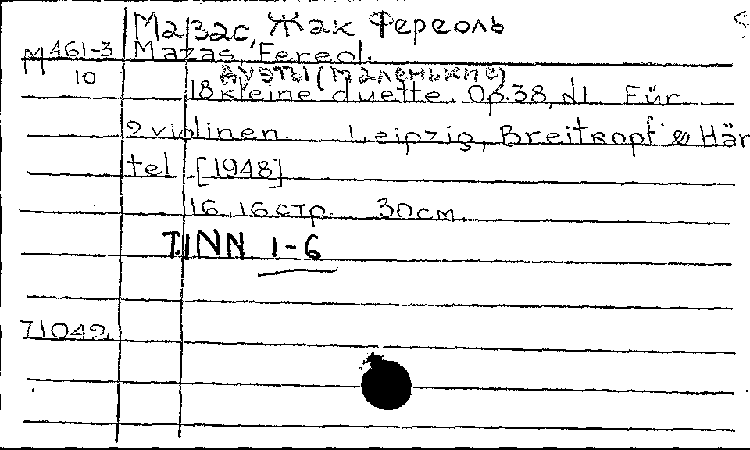 Мазас, Жак Фереоль
М 461-3 Mazas, Fereol.
10 дуэты (маленькие)
18 kleine duette. Op. 38, d1 Für
2 violinen Leipzig, Breitkopf & Här
tel [1948]
16, 16 стр. 30 см.
T.1NN 1-6
71042